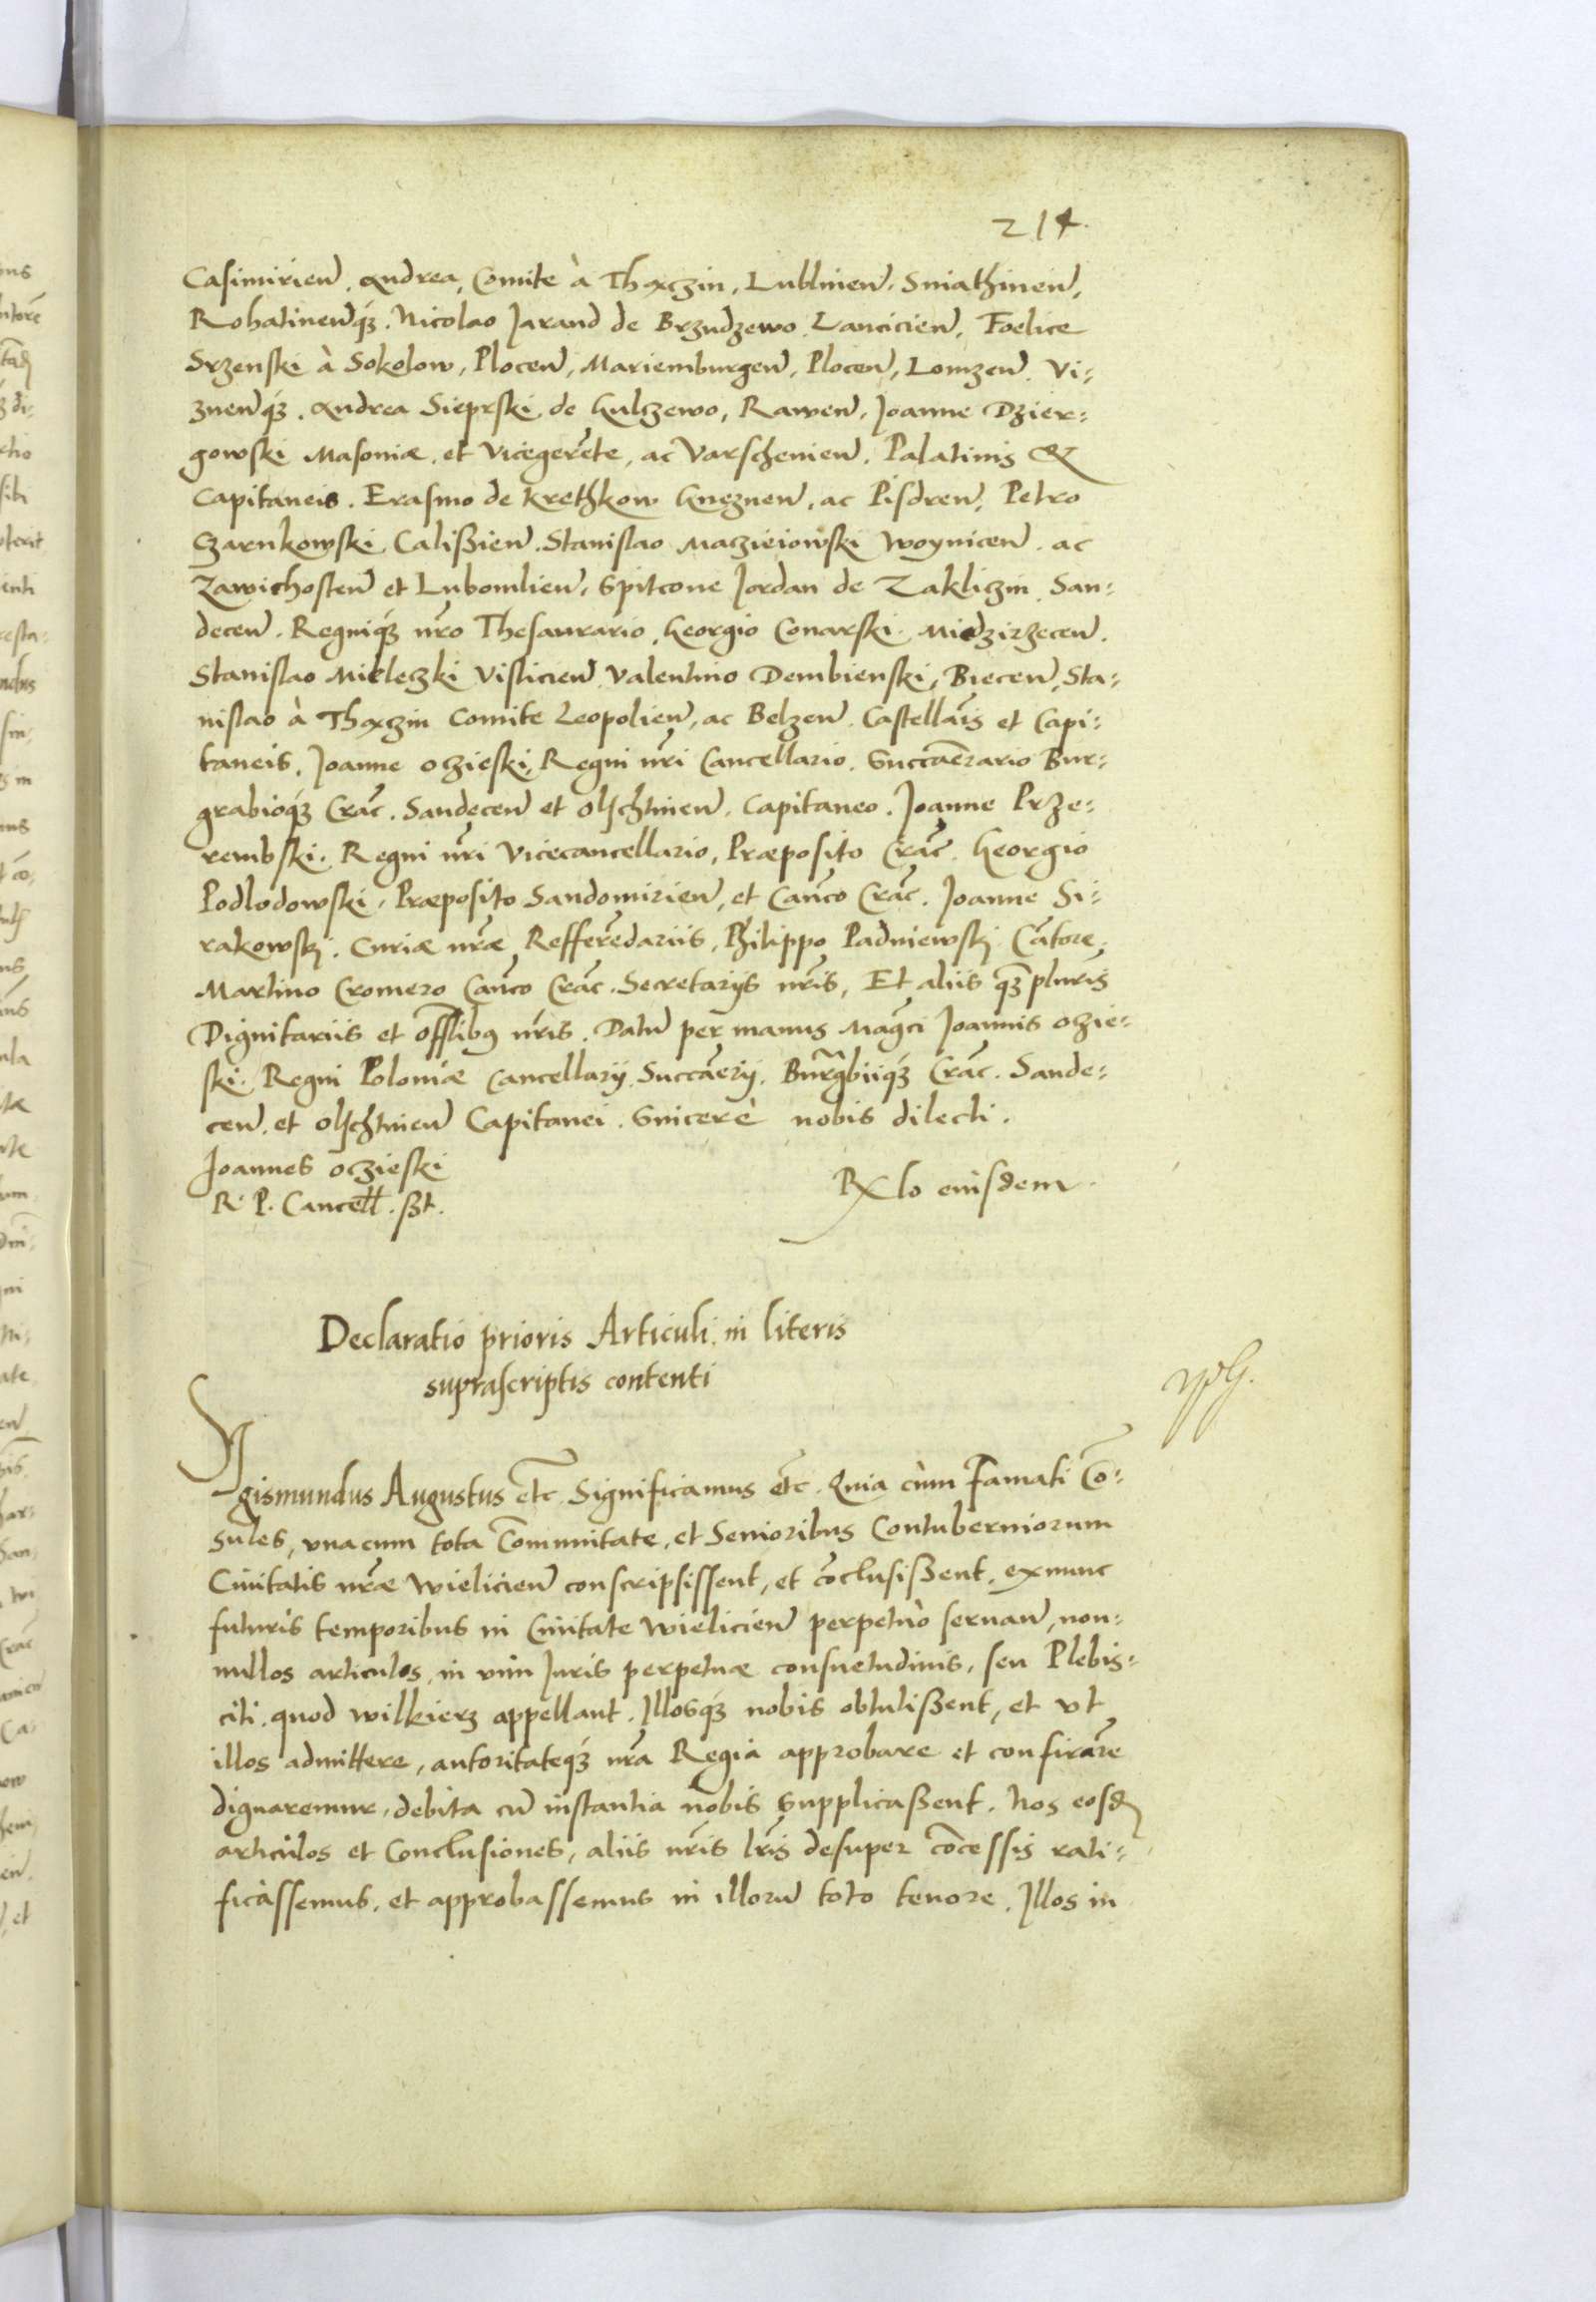 214.
Casimirień. Andrea, Comite à Thęczin, Lublinień, Sniathinień,
Rohatineńq́. Nicolao Jarand de Brzudzewo Lancicień, Foelice
Srzenski à Sokolow, Plocen̄, Mariemburgen̄, Plocen̄, Lomzen̄ Vi-
znen̄q́. Andrea Sieprski de Gulczewo, Rawen̄, Joanne Dzier-
gowski Masoniæ, et Vicegerēte, ac Varschenien̄. Palatinis &
Capitaneis. Erasmo de Krethkow Gneznen̄, ac Pisdren̄, Petro
Czarnkowski Calißien̄. Stanislao Maczieiowski Woynicen̄. ac
Zawichosten̄ et Lubomlien̄, Spitcone Jordan de Zakliczin San-
decen̄. Regniq́ nr̄o Thesaurario, Georgio Conarski. Miedzirzecen̄.
Stanislao Mieleczki Vislicien̄ Valentino Dembienski, Biecen̄, Sta-
nislao à Thęczin Comite Leopolien̄, ac Belzen̄. Castellāis et Capi-
taneis, Joanne Oczieski, Regni nr̄i Cancellario. Succāerario Bur-
grabioq́ Crac̄. Sandecen̄ et Olschtinen̄. Capitaneo. Joanne Prze-
rembski. Regni nr̄i Vicecancellario, Præposito Crac̄. Georgio
Podlodowski, Præposito Sandomirien̄, et Can̄co Crac̄. Joanne Si-
rakowski. Curiæ nr̄æ Refferēdariis, Philippo Padniewski Cātore,
Martino Cromero Can̄co Crac̄. Secretarijs nr̄is, Et aliis q̄ꝫ pluris
Dignitariis et offl̄ibꝫ nr̄is. Datū per manus Mag̃ci Joannis Oczie-
ski. Regni Poloniæ Cancellarij Succāerij. Burgr̄biiq́ Crac̄. Sande-
cen̄. et Olschtinen̄ Capitanei. Sincerè nobis dilecti.
Joannes Oczieski
R. P. Cancell. ßt.
Rx lo eiusdem.
Declaratio prioris Articuli in literis
suprascriptis contenti
Sigismundus Augustus etc̄. Significamus etc̄. Quia cùm Famati Cō-
sules, vna cum tota Com̄unitate, et Senioribus Contuberniorum
Ciuitatis nr̄æ Wielicien̄ conscripsissent, et cōclusißent, ex nunc
futuris temporibus in Ciuitate Wielicien̄ perpetuò seruan̄, non-
nullos articulos, in vim Juris perpetuæ consuetudinis, seu Plebis-
citi, quod wilkierz appellant. Illosq́ nobis obtulißent, et vt
illos admittere, autoritateq́ nr̄a Regia approbare et confirār̄e
dignaremur, debita cū instantia nobis supplicaßent. Nos eosd̄
articulos et Conclusiones, aliis nr̄is lr̄is desuper cōcessis rati-
ficàssemus, et approbassemus in illorū toto tenore. Illos in